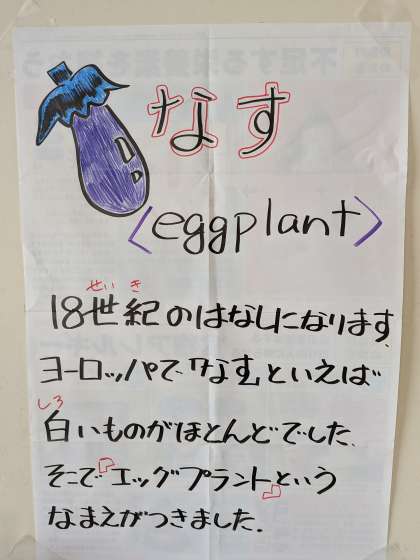 なす
〈eggplant〉
せいき
18世紀のはなしになります
ヨーロッパで「なす」といえば
しろ
白いものがほとんどでした.
そこで『エッグプラント』という
なまえがつきました.